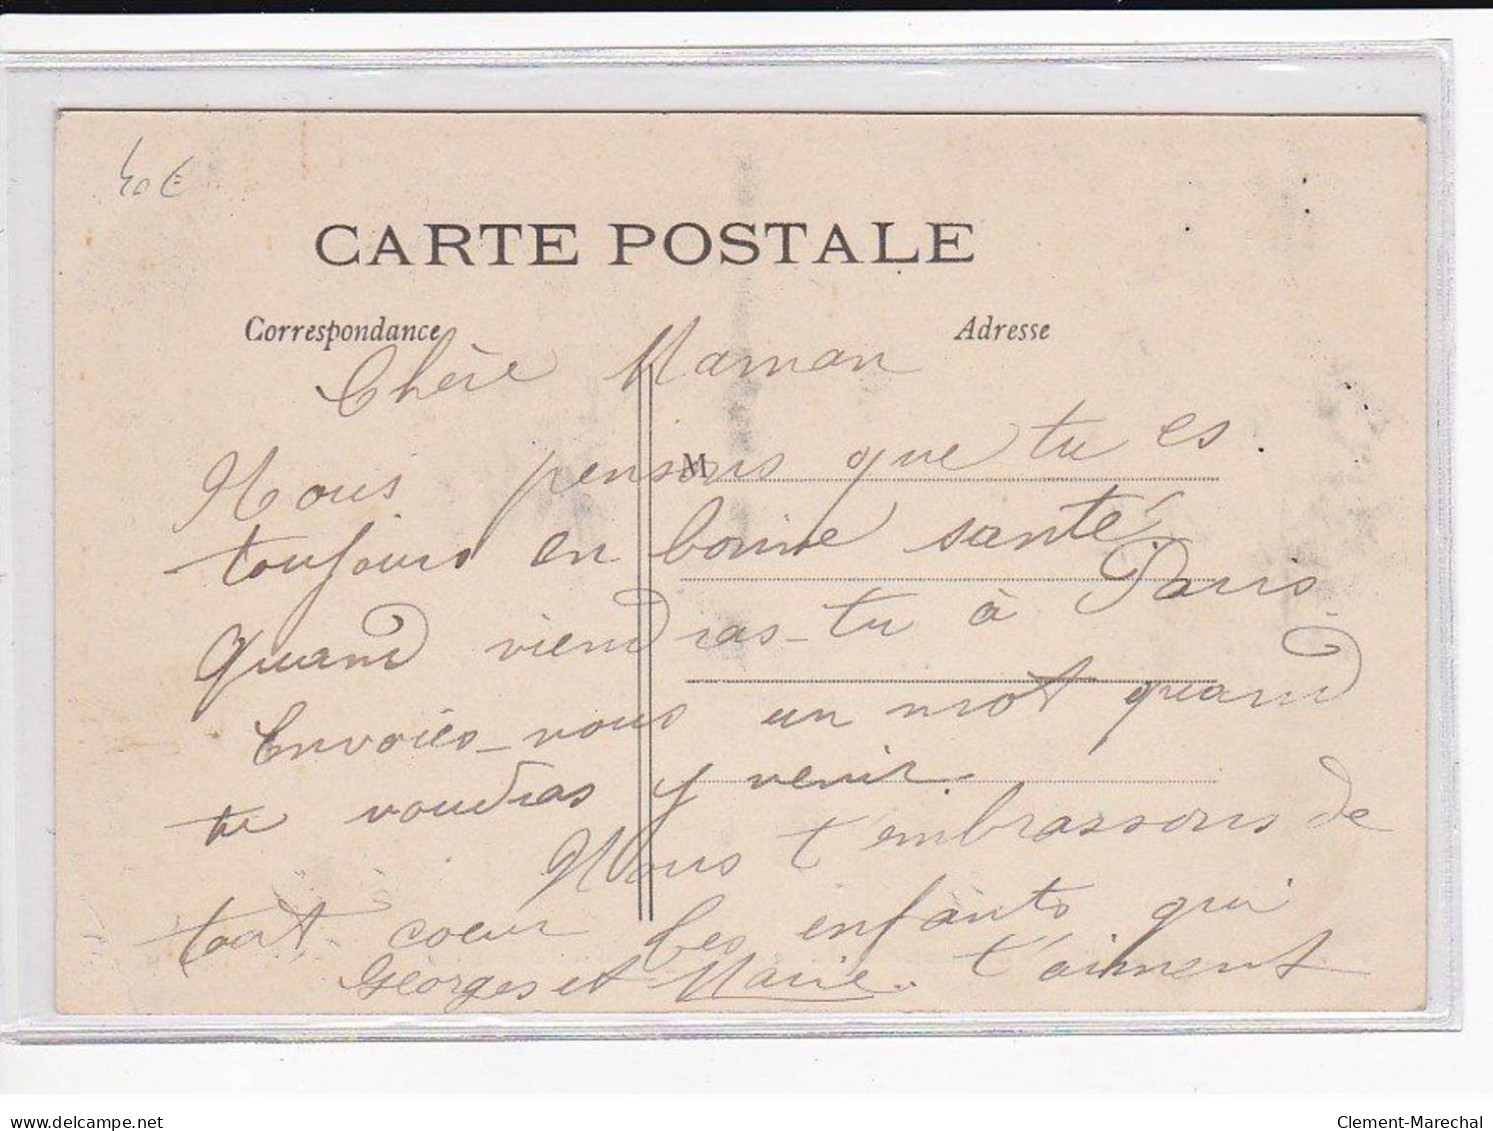 40€
CARTE POSTALE
Correspondance
Adresse
Chère Maman
M
Nous pensons que tu es
toujours en bonne santé.
Quand viendras-tu à Paris.
Envoies-nous un mot quand
tu voudras y venir.
Nous t'embrassons de
tout coeur Les enfants qui
Georges et Marie. t'aiment
delcampe.net
Clement-Marechal